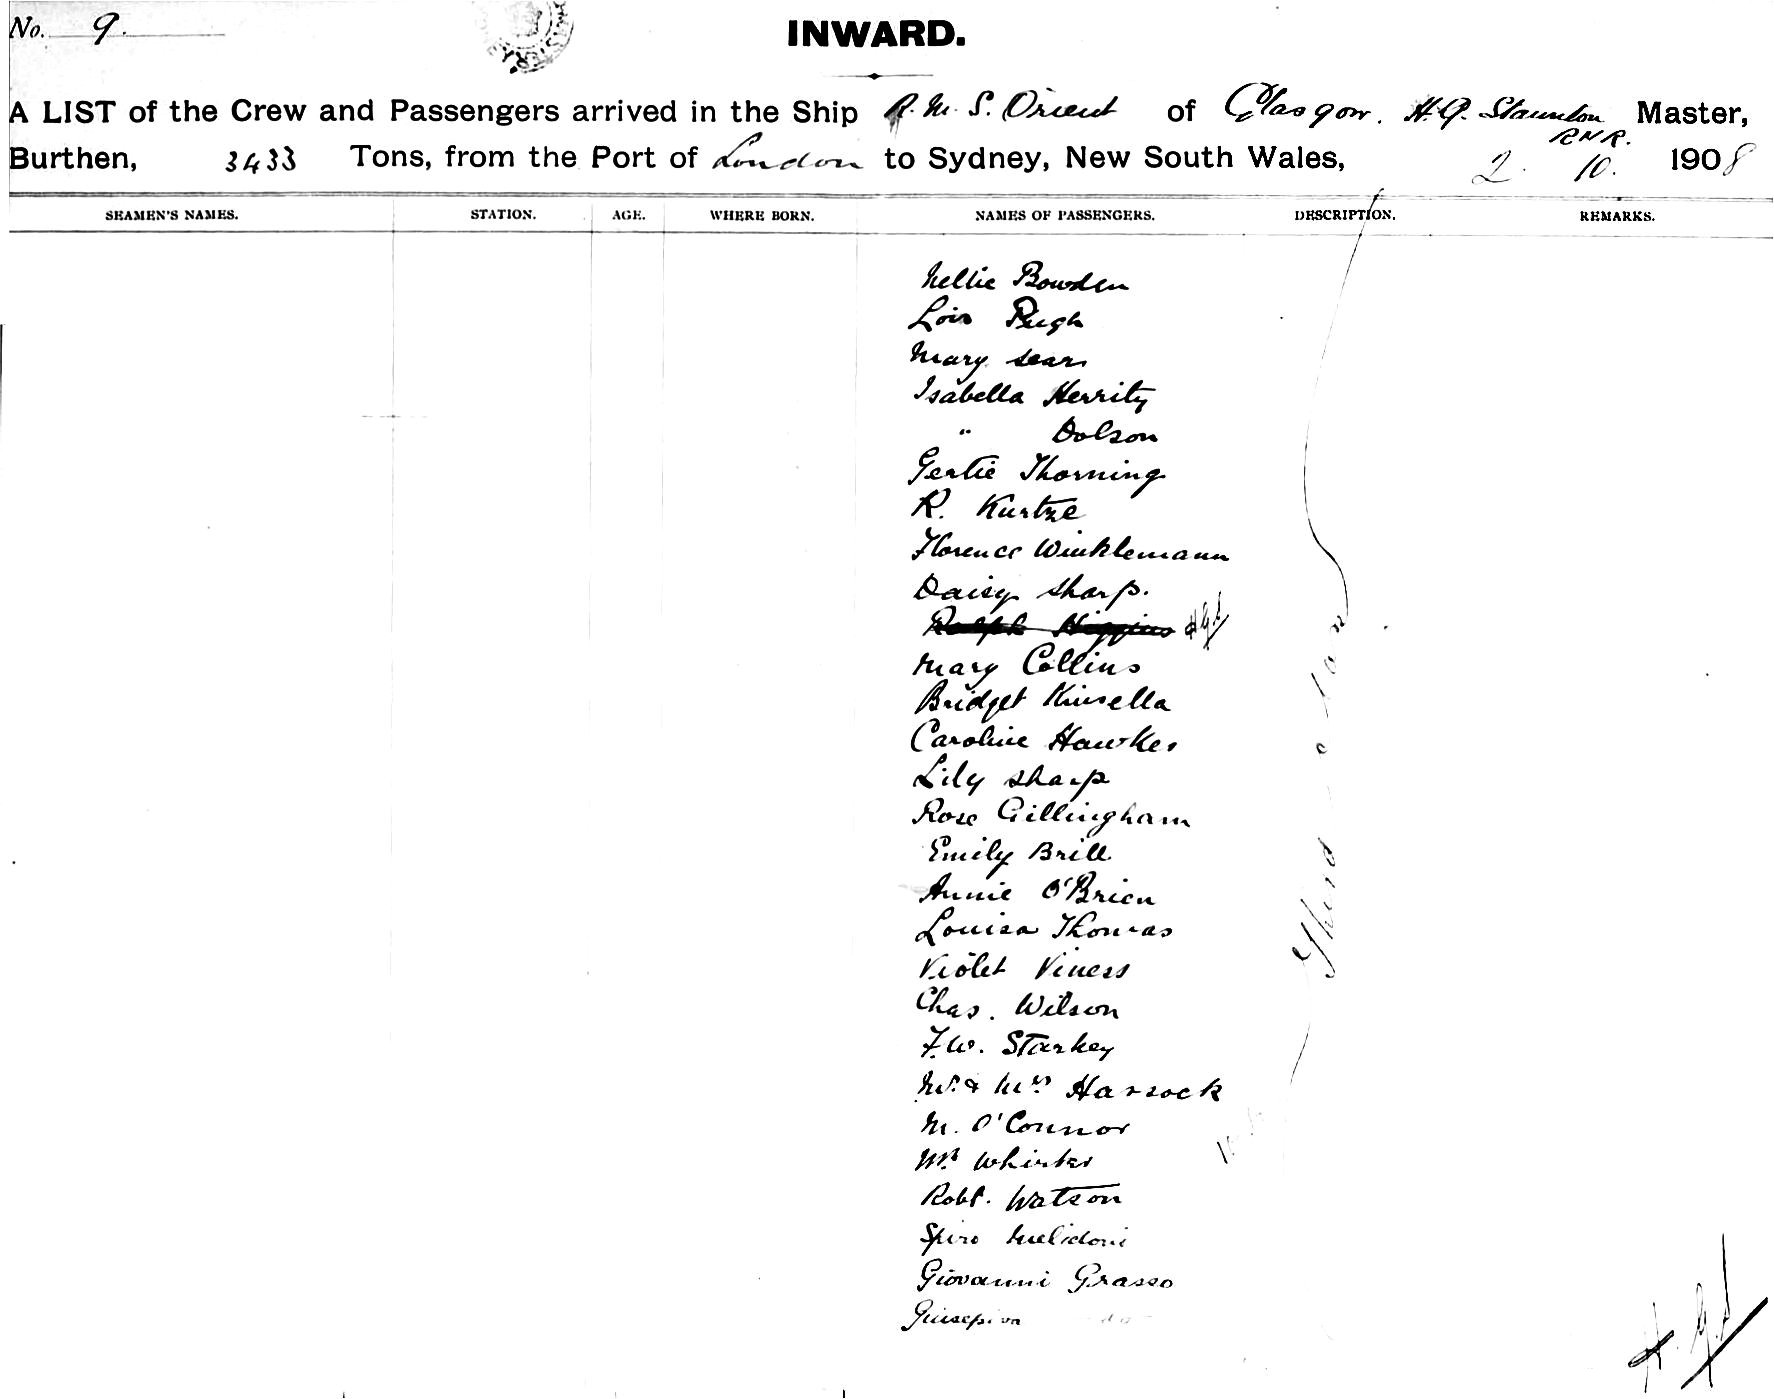 No. 9.
INWARD.
A LIST of the Crew and Passengers arrived in the Ship R. M. S. Orient of Glasgow. H. G. Staunton Master,
R N R.
Burthen, 3433 Tons, from the Port of London to Sydney, New South Wales, 2. 10. 1908
SEAMEN'S NAMES. STATION. AGE. WHERE BORN. NAMES OF PASSENGERS. DESCRIPTION. REMARKS.
Nellie Bowden
Lois Pugh
Mary Sears
Isabella Herrity
" Dolson
Gertie Thorning
R. Kurtze
Florence Winklemann
Daisy Sharp.
Ralph Higgins HGS
Mary Collins
Bridget Kinsella
Caroline Hawkes
Lily Sharp
Rose Gillingham
Emily Brill
Annie O'Brien
Louisa Thomas
Violet Viness
Chas. Wilson
F. W. Starkey
Mr. & Mrs Hassock
M. O'Connor
Mr.
Robt. Watson
Spiro Melidoni
Giovanni Grasso
do
Third class
H. G. S